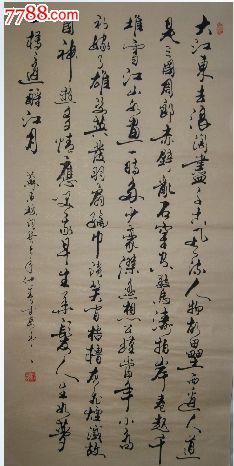 7788.com
大江東去浪淘盡千古風流人物故壘西邊人道
是三國周郎赤壁亂石穿空驚濤拍岸卷起千
堆雪江山如畫一時多少豪傑遙想公瑾當年小喬
初嫁了雄姿英發羽扇綸巾談笑間檣櫓灰飛煙滅故
國神遊多情應笑我早生華髮人生如夢
一樽還酹江月